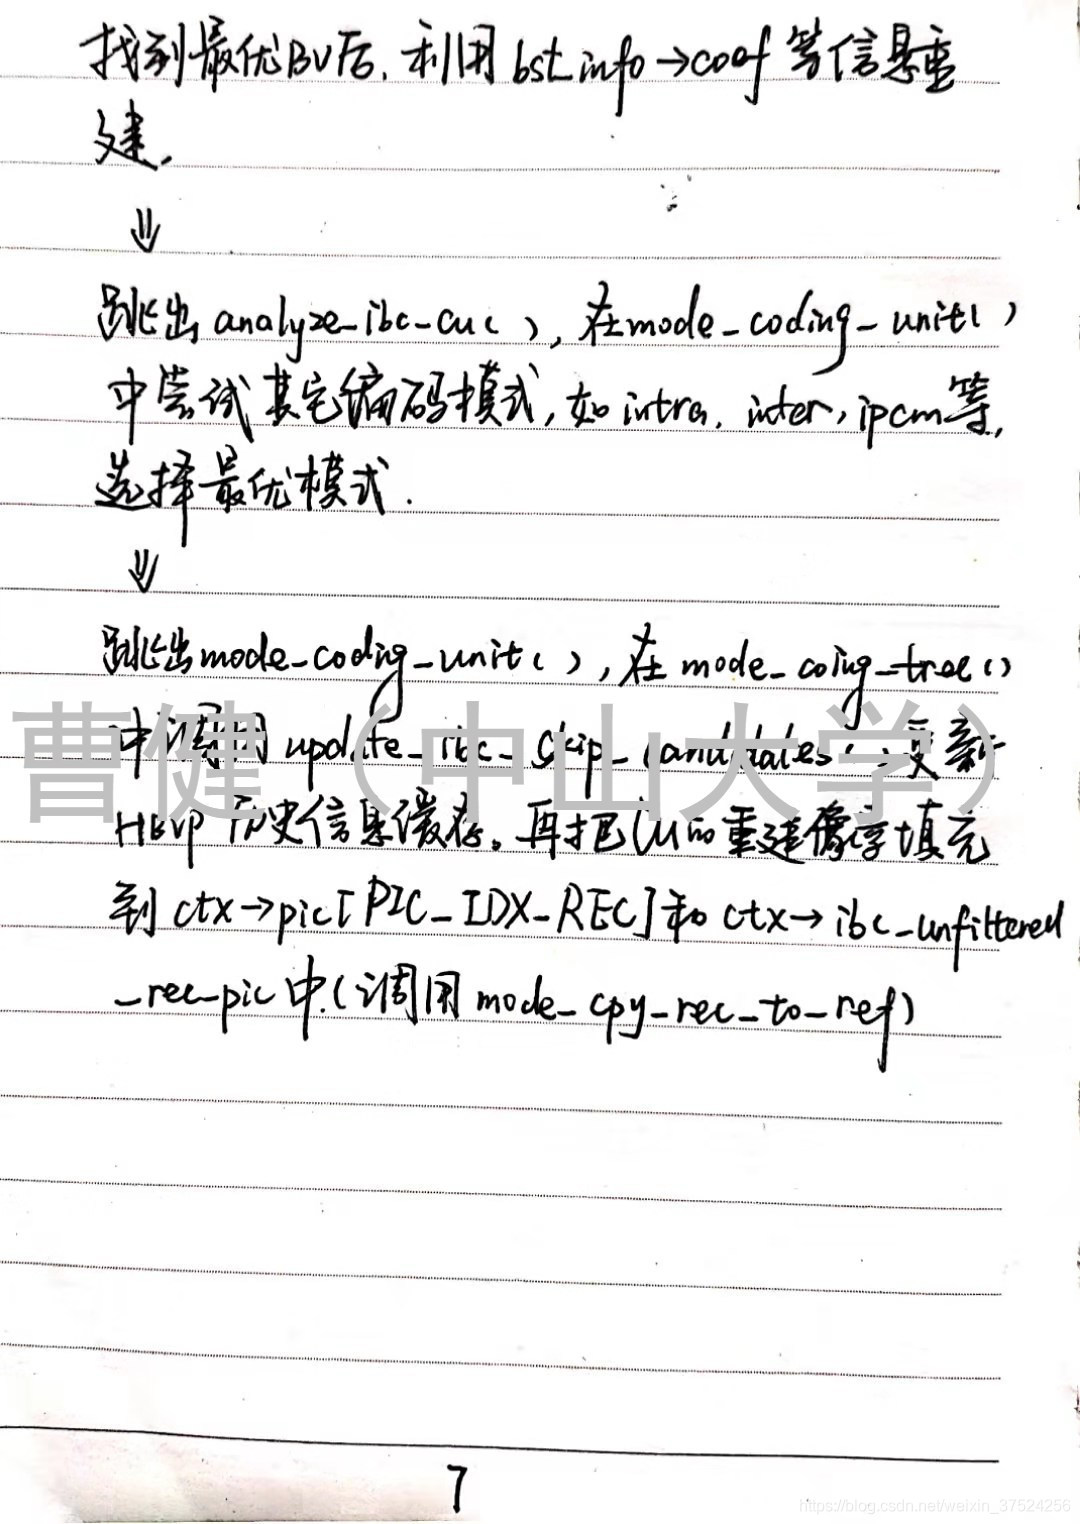 找到最优BV后,利用bst_info→coef等信息重
建.
⇓
跳出analyze_ibc_cu(),在mode_coding_unit()
中尝试其它编码模式,如intra,inter,ipcm等,
选择最优模式.
⇓
跳出mode_coding_unit(),在mode_coing_tree()
中调用update_ibc_skip_candidates()更新
曹健(中山大学)
HBVP历史信息缓存。再把CU的重建像素填充
到ctx→pic[PIC_IDX_REC]和ctx→ibc_unfiltered
_rec_pic中.(调用mode_cpy_rec_to_ref)
7
https://blog.csdn.net/weixin_37524256